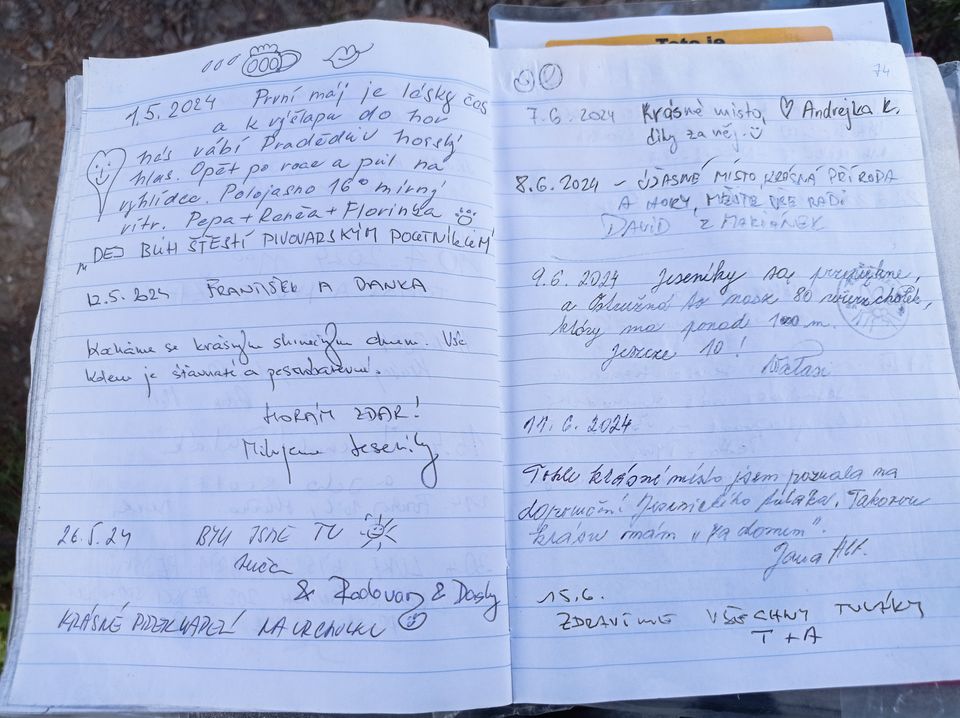 Toto je
1.5.2024 První máj je lásky čas
a k výšlapu do hor
nás vábí Pradědův horský
hlas. Opět po roce a půl na
vyhlídce. Polojasno 16° mírný
vítr. Pepa + Renča + Florinka
"DEJ BŮH ŠTĚSTÍ PIVOVARSKÝM POUTNÍKŮM"
12.5.2024 FRANTIŠEK A DANKA
Kocháme se krásným slunečným dnem. Vše
kolem je šťavnaté a
HORÁM ZDAR!
Milujeme Jeseníky
26.5.24 BYLI JSME TU
Lucča
& Radovan & Dasty
KRÁSNÉ PŘEKVAPENÍ NA VRCHOLKU
74
7.6.2024 Krásné místo, ♡ Andrejka K.
díky za něj.
8.6.2024 - ÚŽASNÉ MÍSTO, KRÁSNÁ PŘÍRODA
A HORY, MĚJTE VŠE RÁDI
DAVID Z MARIÁNEK
9.6.2024 Jeseníky są przepiękne,
a Ostružná to nasz 80 wierzchołek,
który ma ponad 1000 m.
Jeszcze 10!
11.6.2024
Tohle krásné místo jsem poznala na
doporučení Jesenického tuláka. Takovou
krásu mám „za domem".
Jana Alt.
15.6.
ZDRAVÍME VŠECHNY TULÁKY
T + A